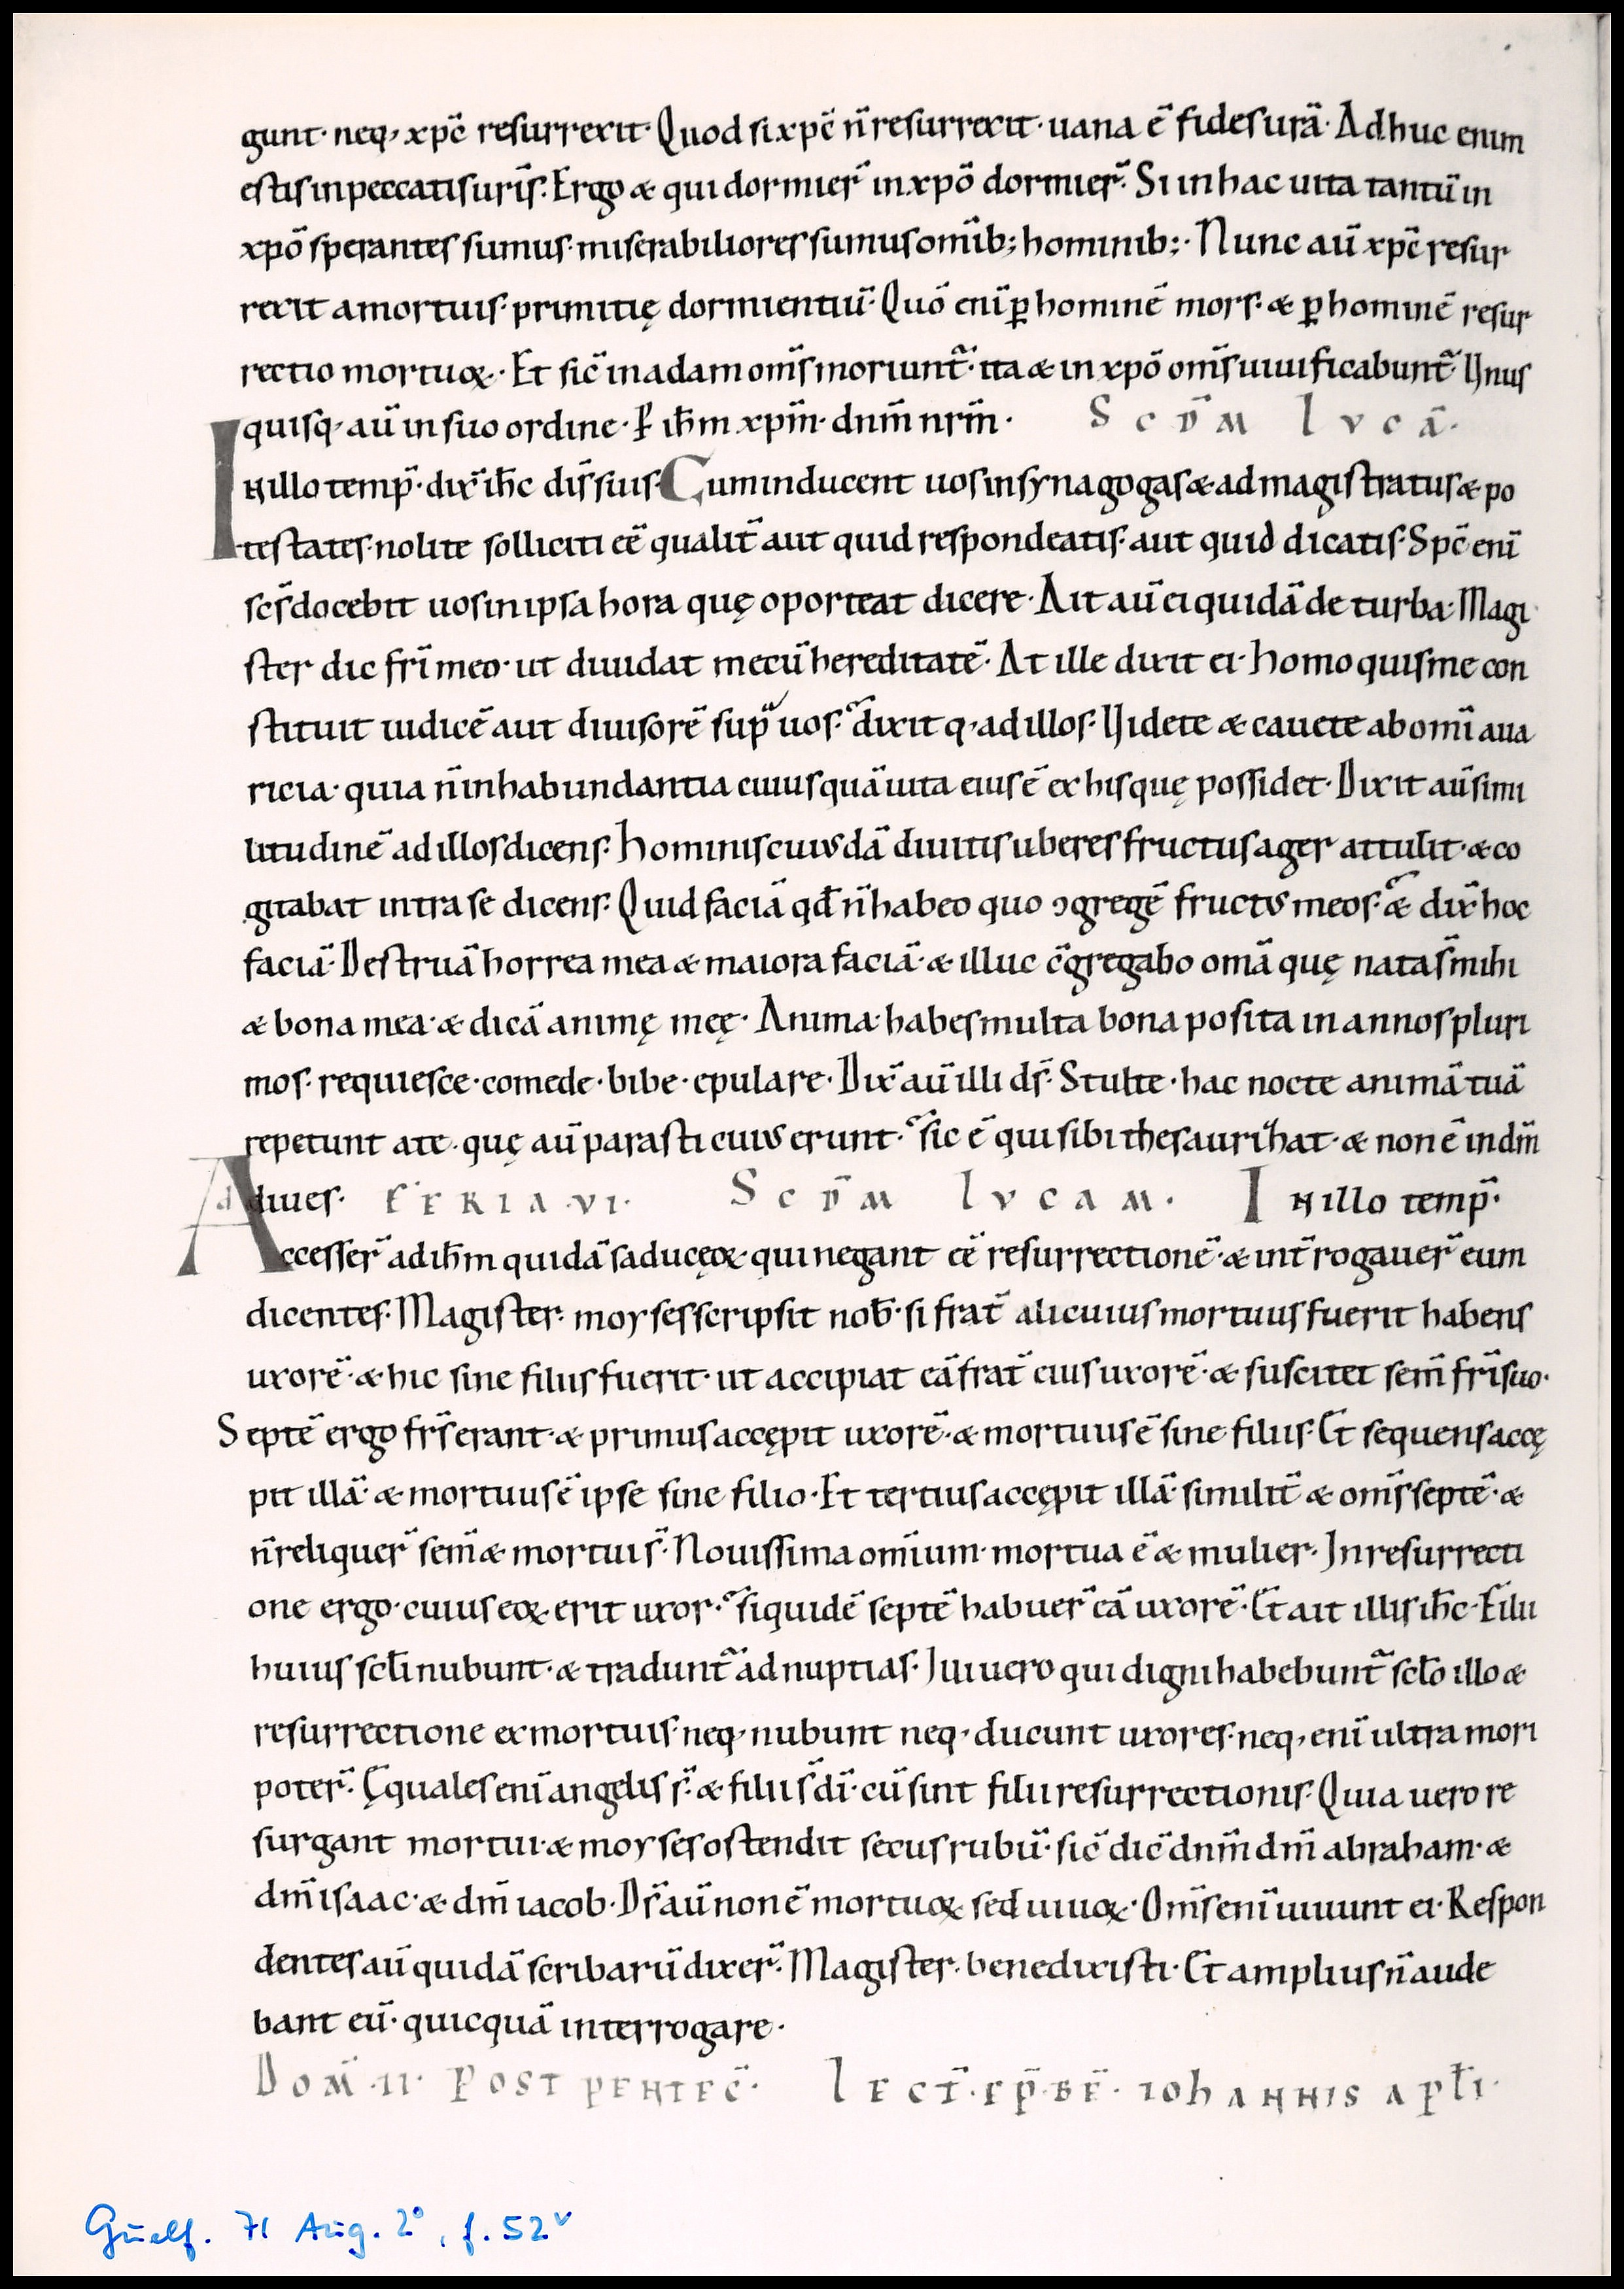 gunt· neq; xpc̄ resurrexit· Quod si xpc̄ n̄ resurrexit· uana ē fides ur̄a· Adhuc enim
estis in peccatis ur̄is· Ergo & qui dormier̄ in xpō dormier̄· Si in hac uita tantū in
xpō sperantes sumus· miserabiliores sumus om̄ib; hominib;· Nunc aū xpc̄ resur
rexit a mortuis· primitię dormientiū· Quō eni ꝑ hominē mors· & ꝑ hominē resur
rectio mortuoꝝ· Et sic̄ in adam om̄s moriunt̄· ita & in xpō om̄s uiuificabunt̄· Unus
quisq; aū in suo ordine· P ih̄m xpm̄· dnm̄ nrm̄· Scd̄m lvcā·
In illo temp̄· dix̄ ih̄c dis̄ suis· Cum inducent uos in synagogas & ad magistratus & po
testates· nolite solliciti ēē qualit̄ aut quid respondeatis· aut quid dicatis· Spc̄ enī
scs̄ docebit uos in ipsa hora quę oporteat dicere· Ait aū ei quidā de turba· Magi
ster dic fr̄i meo· ut diuidat mecū hereditatē· At ille dixit ei· Homo quis me con
stituit iudicē aut diuisorē sup̄ uos· dixitq; ad illos· Uidete & cauete ab om̄i aua
ricia· quia n̄ in habundantia cuiusquā uita eius ē ex his quę possidet· Dixit aū simi
litudinē ad illos dicens· Hominis cuiusdā diuitis uberes fructus ager attulit· & co
gitabat intra se dicens· Quid faciā qd̄ n̄ habeo quo ꝯgregē fructus meos· & dix̄ hoc
faciā· Destruā horrea mea & maiora faciā· & illuc c̄gregabo om̄a quę nata s̄ mihi
& bona mea· & dicā animę meę· Anima· habes multa bona posita in annos pluri
mos· requiesce· comede· bibe· epulare· Dix̄ aū illi ds̄· Stulte· hac nocte animā tuā
repetunt a te· quę aū parasti cuius erunt· sic ē qui sibi thesaurihat· & non ē in dm̄
diues· FERIA·VI· Scd̄m lvcam· In illo temp̄·
Ad Accesser̄ ad ih̄m quidā saducęoꝝ· qui negant ēē resurrectionē· & int̄rogauer̄ eum
dicentes· Magister· moyses scripsit nob̄· si frat̄ alicuius mortuus fuerit habens
uxorē· & hic sine filiis fuerit· ut accipiat eā frat̄ eius uxorē· & suscitet sem̄ fr̄i suo·
Septē ergo fr̄s erant· & primus accępit uxorē· & mortuus ē sine filiis· Et sequens accę
pit illā· & mortuus ē ipse sine filio· Et tertius accępit illā· similit̄ & om̄s septē· &
n̄ reliquer̄ sem̄ & mortui s̄· Nouissima omīum· mortua ē & mulier· In resurrecti
one ergo· cuius eoꝝ erit uxor· siquidē septē habuer̄ eā uxorē· Et ait illis ih̄c· Filii
huius sclī nubunt· & tradunt̄ ad nuptias· Illi uero qui digni habebunt̄ sclō illo &
resurrectione ex mortuis· neq; nubunt neq; ducunt uxores· neq; enī ultra mori
poter̄· Ęquales enī angelis s̄· & filii s̄ dī· cū sint filii resurrectionis· Quia uero re
surgant mortui· & moyses ostendit secus rubū· sic̄ dic̄ dnm̄ dm̄ abraham· &
dm̄ isaac· & dm̄ iacob· Ds̄ aū non ē mortuoꝝ sed uiuoꝝ· Om̄s enī uiuunt ei· Respon
dentes aū quidā scribarū dixer̄· Magister· bene dixisti· Et amplius n̄ aude
bant eū· quicquā interrogare·
Dom̄·II· Post pentec̄· Lect̄·ep̄·bē· iohannis aplī·
Guelf. 71 Aug. 2°, f. 52ᵛ